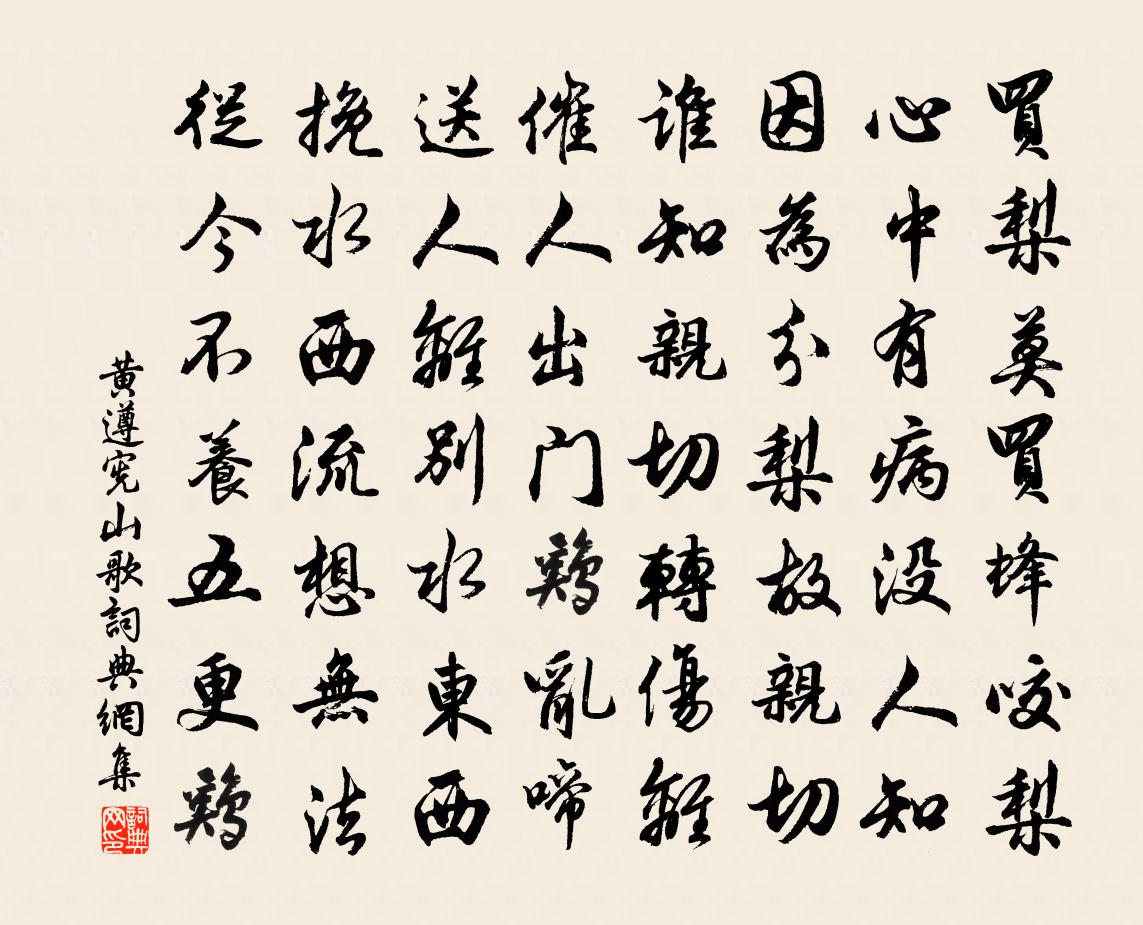 買梨莫買蜂咬梨
心中有病没人知
因為分梨故親切
誰知親切轉傷離
催人出門鷄亂啼
送人離別水東西
挽水西流想無法
從今不養五更鷄
黃遵宪山歌詞典網集
詞典网印